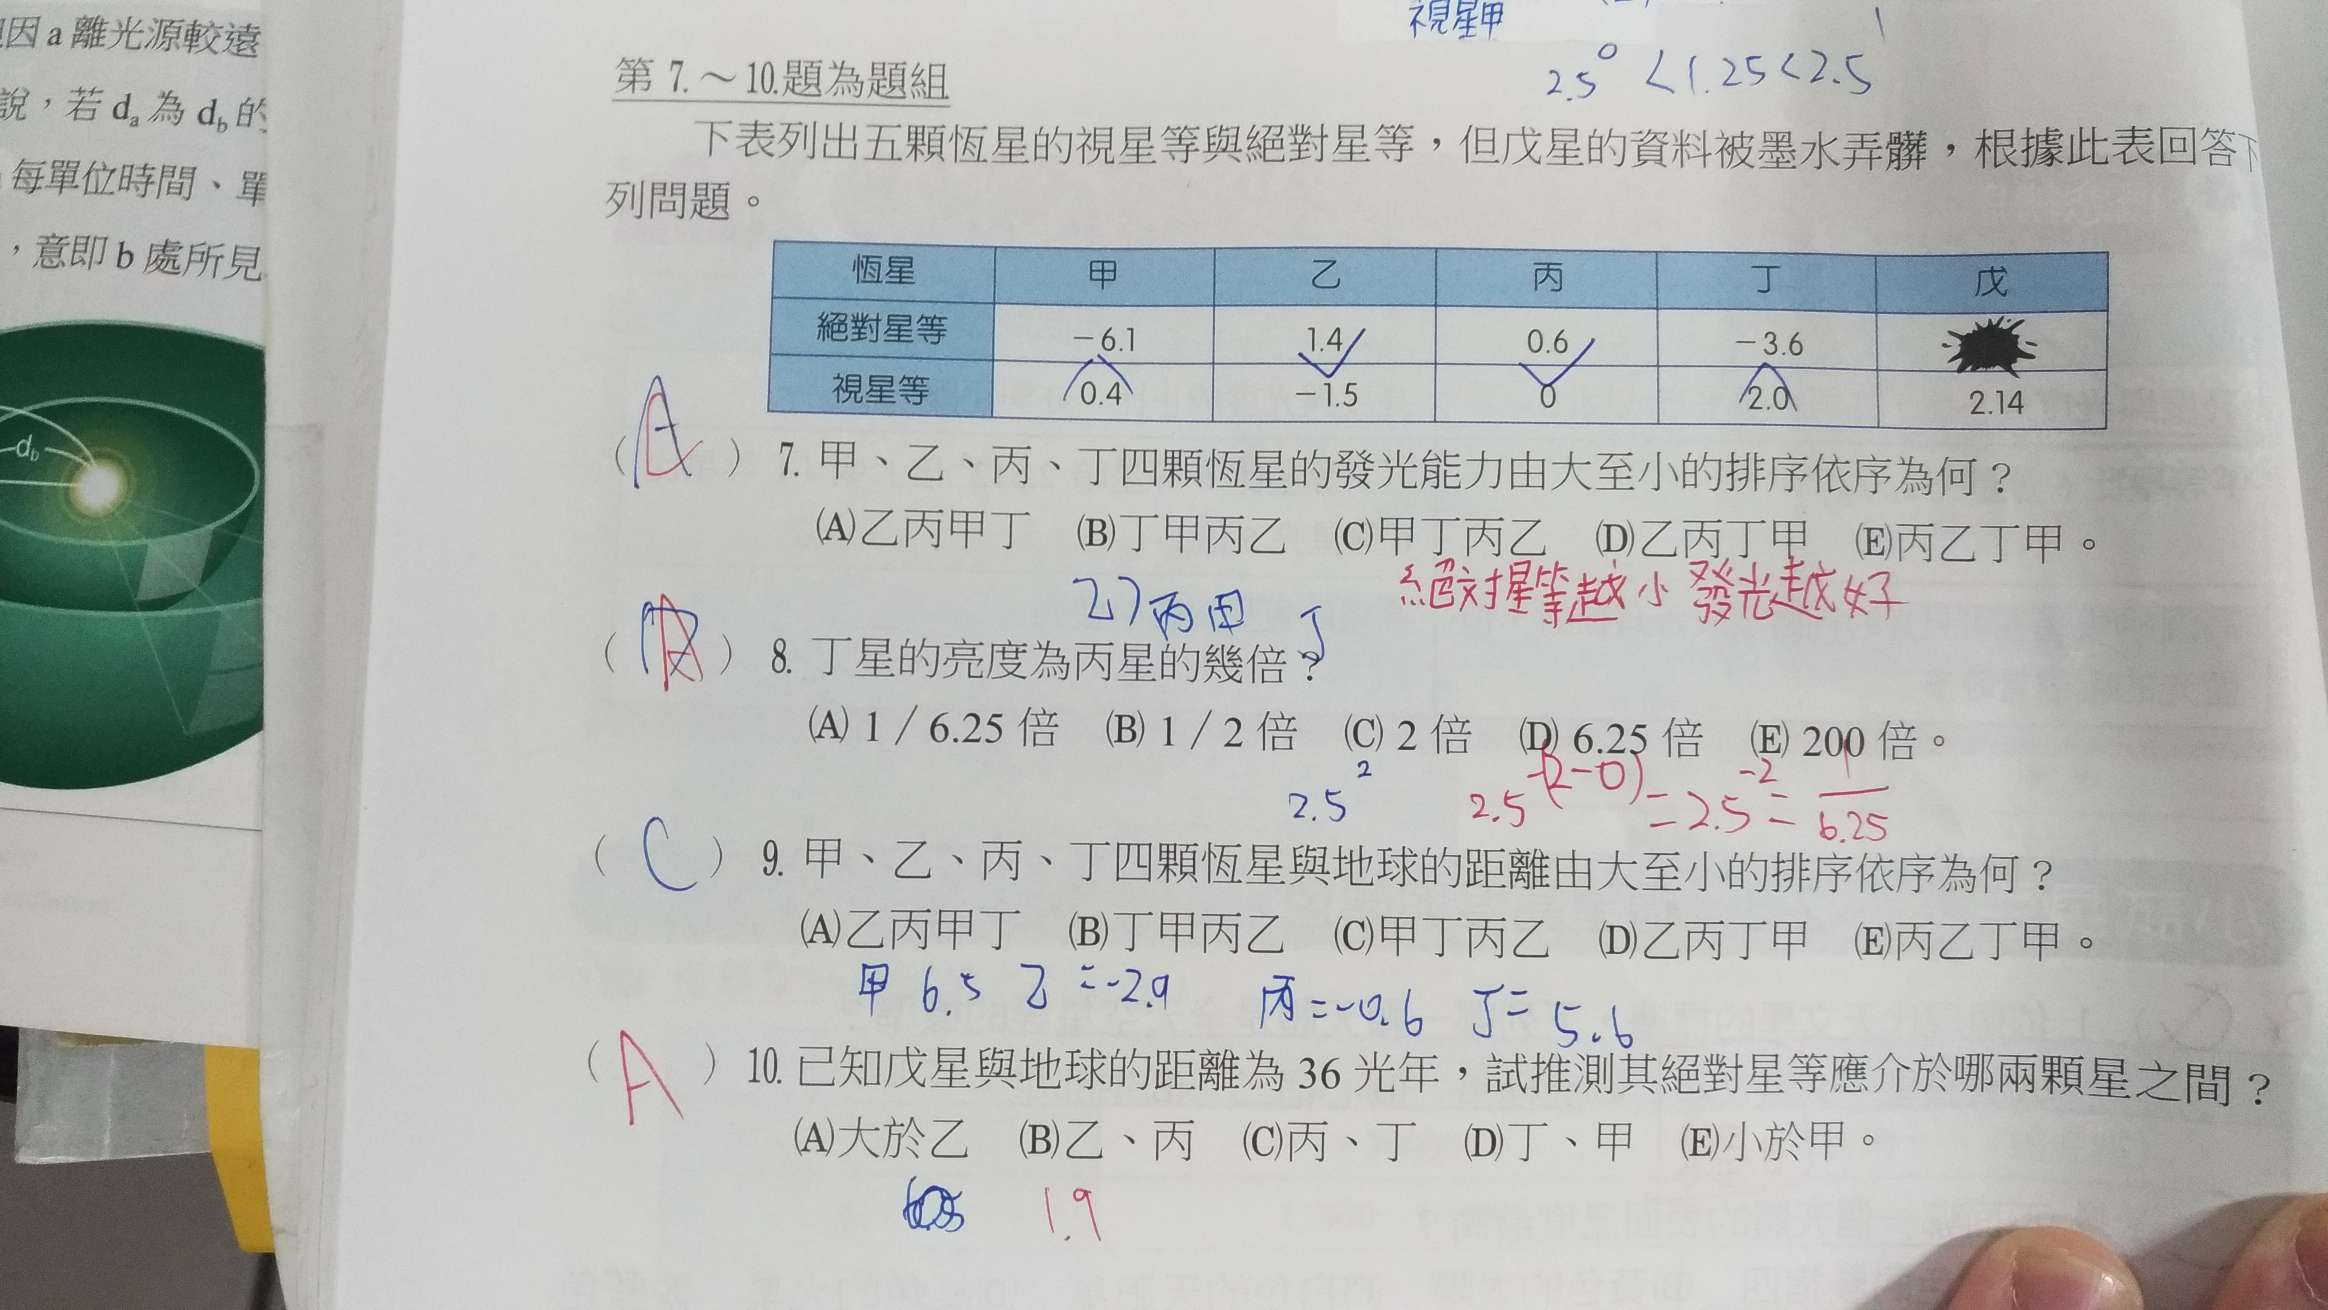 因 a 離光源較遠
說，若 da 為 db 的
每單位時間、單
，意即 b 處所見
db
視星甲
2.5⁰ < 1.25 < 2.5¹
第 7.～10.題為題組
下表列出五顆恆星的視星等與絕對星等，但戊星的資料被墨水弄髒，根據此表回答下
列問題。
恆星 甲 乙 丙 丁 戊
絕對星等 －6.1 1.4 0.6 －3.6
視星等 0.4 －1.5 0 2.0 2.14
（ ） 7. 甲、乙、丙、丁四顆恆星的發光能力由大至小的排序依序為何？
(A)乙丙甲丁 (B)丁甲丙乙 (C)甲丁丙乙 (D)乙丙丁甲 (E)丙乙丁甲。
乙>丙甲丁
絕對星等越小 發光越好
（ A ） 8. 丁星的亮度為丙星的幾倍？
(A) 1／6.25 倍 (B) 1／2 倍 (C) 2 倍 (D) 6.25 倍 (E) 200 倍。
2.5² 2.5^-(2-0) = 2.5^-2 = 1/6.25
（ C ） 9. 甲、乙、丙、丁四顆恆星與地球的距離由大至小的排序依序為何？
(A)乙丙甲丁 (B)丁甲丙乙 (C)甲丁丙乙 (D)乙丙丁甲 (E)丙乙丁甲。
甲 6.5 乙 =-2.9 丙=-0.6 丁= 5.6
（ A ） 10. 已知戊星與地球的距離為 36 光年，試推測其絕對星等應介於哪兩顆星之間？
(A)大於乙 (B)乙、丙 (C)丙、丁 (D)丁、甲 (E)小於甲。
1.9